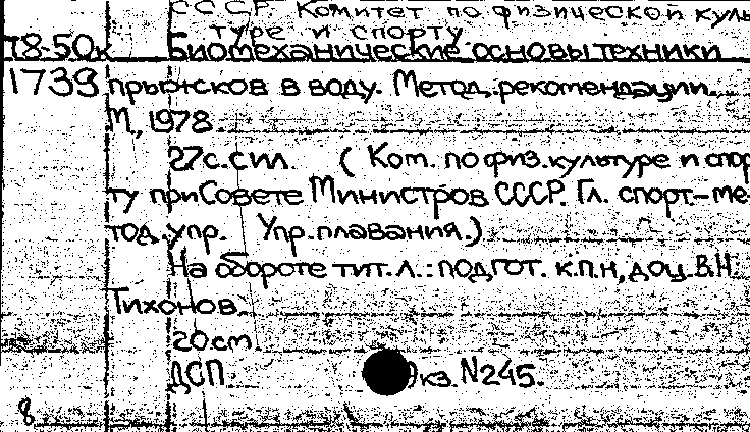 СССР Комитет по физической куль
туре и спорту
78-50к Биомеханические основы техники
1739 прыжков в воду. Метод. рекомендации.
М., 1978.
27с.с ил. (Ком. по физ.культуре и спор
ту при Совете Министров СССР. Гл. спорт-ме
тод. упр. Упр. плавания.)
На обороте тит.л.: подгот. к.п.н, доц. В.Н.
Тихонов.
20 см.
ДСП Экз. N245.
8